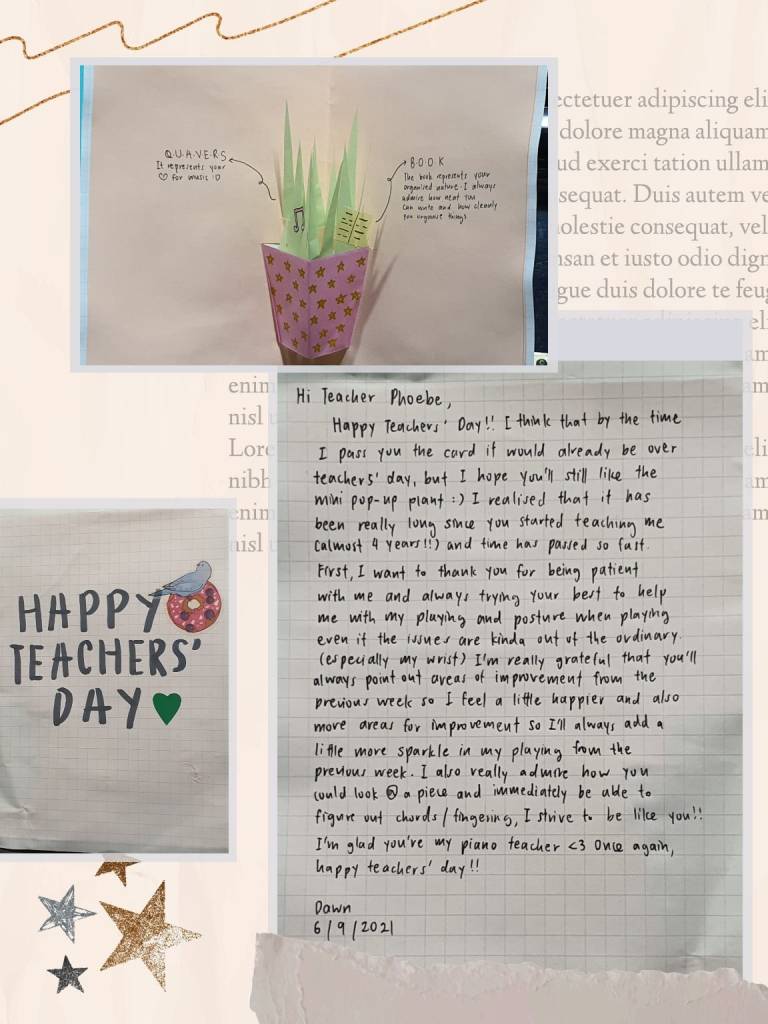 Q.U.A.V.E.R.S
It represents your
♡ for music :D
B.O.O.K
The book represents your
organised nature. I always
admire how neat you
can write and how cleanly
you organise things.
ectetuer adipiscing eli
dolore magna aliquam
ud exerci tation ullam
sequat. Duis autem ve
olestie consequat, vel
nsan et iusto odio dign
gue duis dolore te feug
enim
nisl u
Lore
nibh
enim
nisl u
Hi Teacher Phoebe,
Happy Teachers' Day!! I think that by the time
I pass you the card it would already be over
teachers' day, but I hope you'll still like the
mini pop-up plant :) I realised that it has
been really long since you started teaching me
(almost 4 years!!) and time has passed so fast.
First, I want to thank you for being patient
with me and always trying your best to help
me with my playing and posture when playing
even if the issues are kinda out of the ordinary.
(especially my wrist) I'm really grateful that you'll
always point out areas of improvement from the
previous week so I feel a little happier and also
more areas for improvement so I'll always add a
little more sparkle in my playing from the
previous week. I also really admire how you
could look @ a piece and immediately be able to
figure out chords/fingering, I strive to be like you!!
I'm glad you're my piano teacher <3 Once again,
happy teachers' day!!
Dawn
6/9/2021
HAPPY
TEACHERS'
DAY